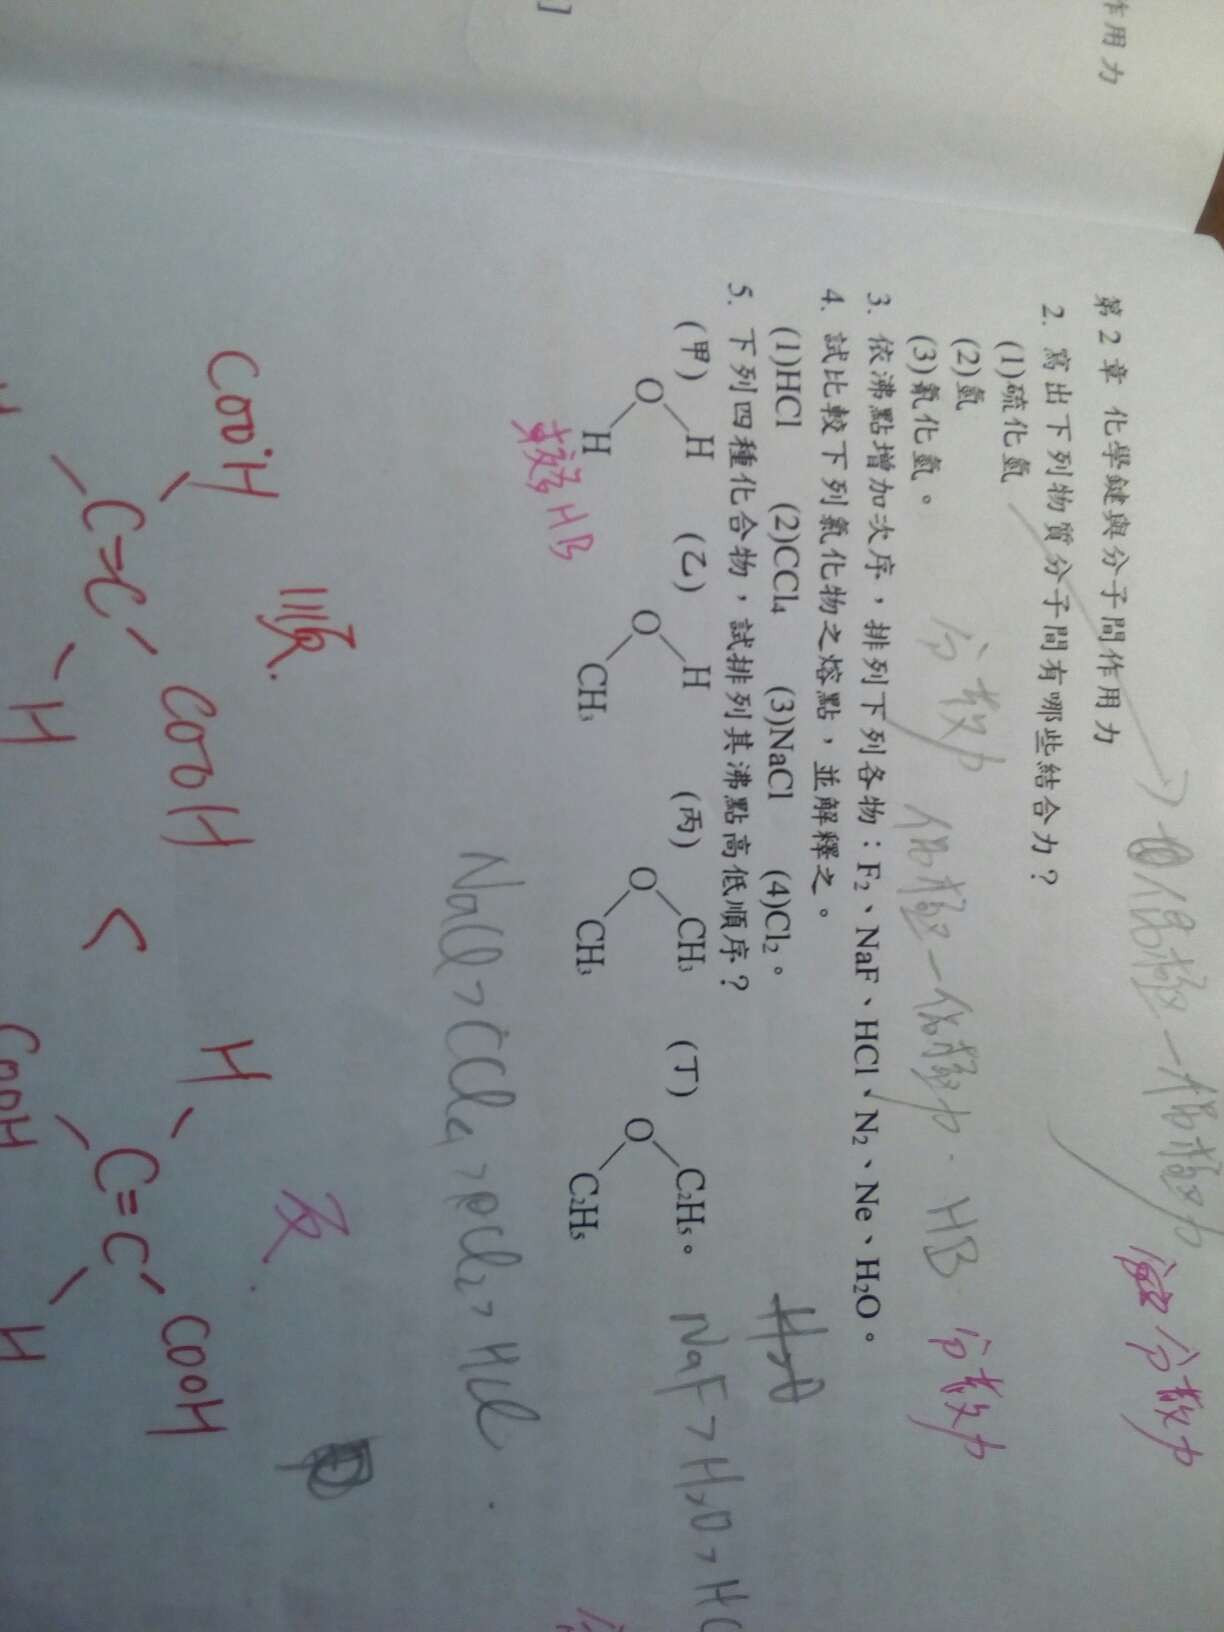 作用力
第2章 化學鍵與分子間作用力
2. 寫出下列物質分子間有哪些結合力？
(1)硫化氫
偶極－偶極力 分散力
(2)氫
分散力
(3)氟化氫。
偶極－偶極力. HB 分散力
3. 依沸點增加次序，排列下列各物：F₂、NaF、HCl、N₂、Ne、H₂O。
4. 試比較下列氯化物之熔點，並解釋之。
H₂O
(1)HCl (2)CCl₄ (3)NaCl (4)Cl₂。
5. 下列四種化合物，試排列其沸點高低順序？
NaF > H₂O > HC
(甲) (乙) (丙) (丁)
H H CH₃ C₂H₅。
O O O O
H CH₃ CH₃ C₂H₅
HB
NaCl > CCl₄ > Cl₂ > HCl.
順. 反.
COOH COOH < H COOH
C=C C=C
H COOH H
]